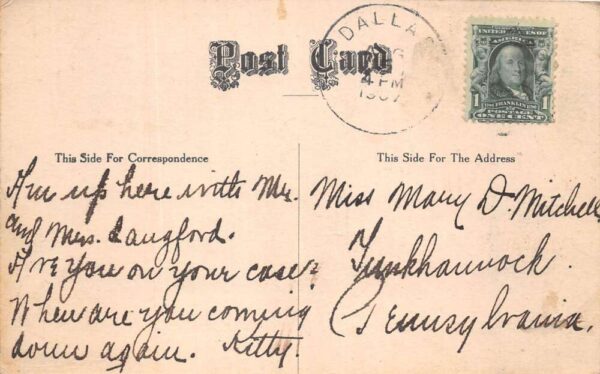 Post Card
DALLAS
4 PM
1907
UNITED STATES OF
AMERICA
1 FRANKLIN 1
POSTAGE
ONE CENT
This Side For Correspondence
Am up here with Mr.
and Mrs. Langford.
Are you on your case?
When are you coming
down again. Kitty.
This Side For The Address
Miss Mary D. Mitchell
Tunkhannock
Pennsylvania.